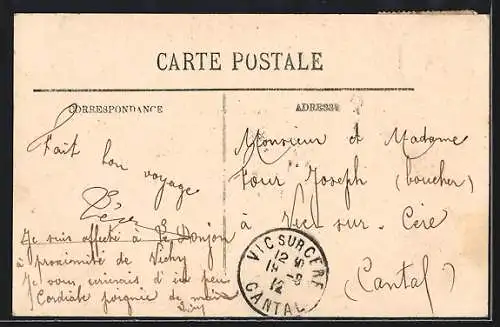 CARTE POSTALE
CORRESPONDANCE
ADRESSE
Fait bon voyage
Je suis affecté à Le Donjon
à proximité de Vichy
Je vous écrirais d'ici peu
Cordiale poignée de main
Monsieur et Madame
Four Joseph (boucher)
à Vic-sur-Cère
(Cantal)
VIC SUR CERE
12
19 -8
14
CANTAL